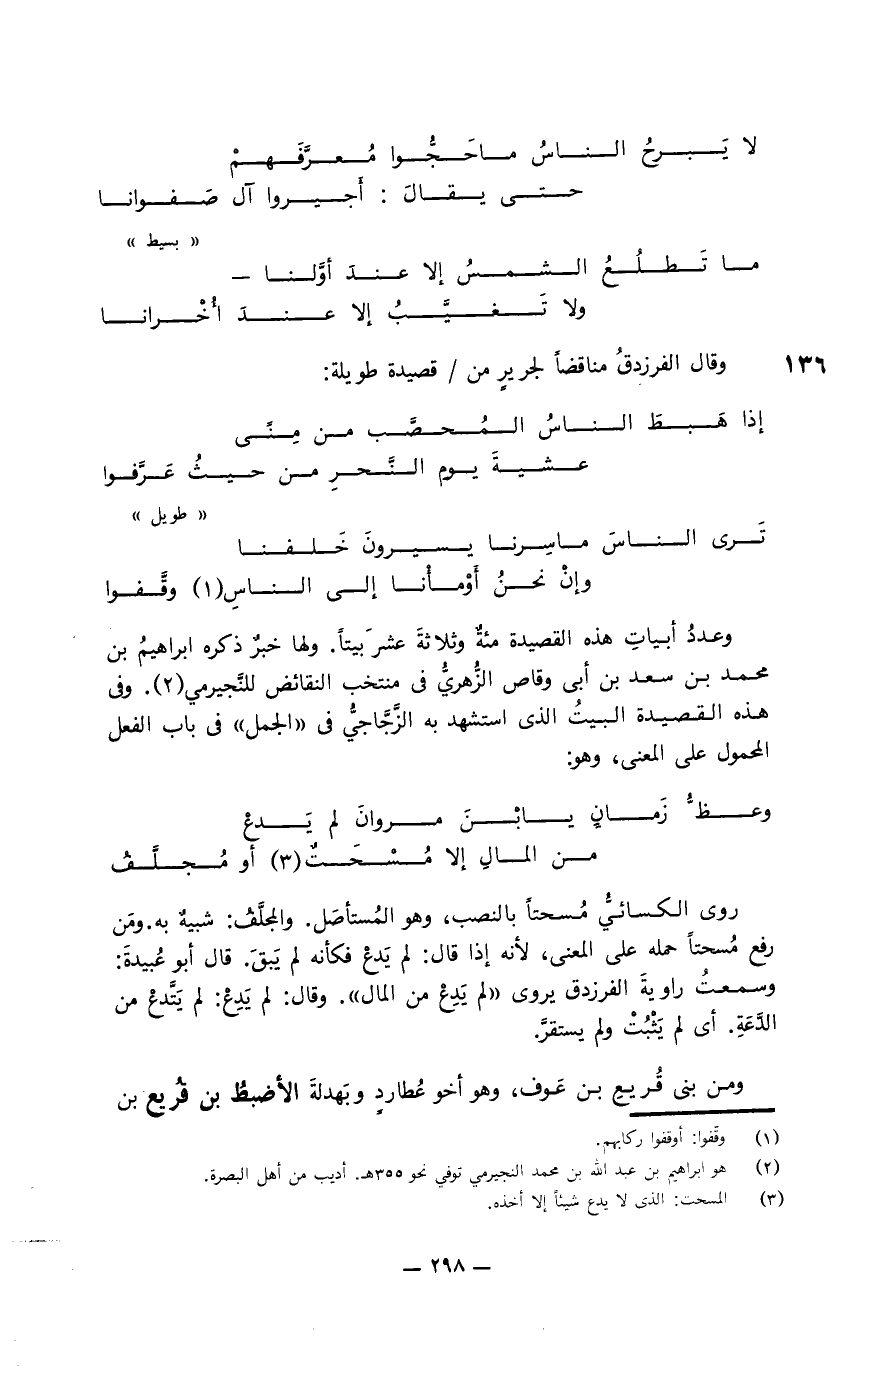 لا يَبرحُ الناسُ ماحَجُّوا مُعرَّفَهمْ
حتى يقالَ : أَجيروا آل صَفوانا
« بسيط »
ما تَطلُعُ الشمسُ إلا عندَ أوَّلنا –
ولا تَغيَّبُ إلا عندَ أُخْرانا
١٣٦ وقال الفرزدقُ مناقضاً لجريرٍ من / قصيدة طويلة:
إذا هَبطَ الناسُ المُحصَّب من مِنًى
عشيةَ يوم النَّحرِ من حيثُ عَرَّفوا
« طويل »
تَرى الناسَ ماسِرنا يسيرونَ خَلفنا
وإنْ نحنُ أَوْمأْنا إلى الناسِ(١) وقَّفوا
وعددُ أبياتِ هذه القصيدة مئةٌ وثلاثةَ عشرَ بيتاً. ولها خبرٌ ذكره ابراهيمُ بن
محمد بن سعد بن أبى وقاص الزُّهريُّ فى منتخب النقائض للنَّجيرمي(٢). وفى
هذه القصيدة البيتُ الذى استشهد به الزَّجَّاجيُّ فى «الجمل» فى باب الفعل
المحمول على المعنى، وهو:
وعظُّ زَمانٍ يابْنَ مروانَ لم يَدعْ
من المالِ إلا مُسْحَتٌ(٣) أو مُجلَّفُ
روى الكسائيُّ مُسحتاً بالنصب، وهو المُستأصَل. والمجلَّفُ: شبيهٌ به.ومَن
رفع مُسحتاً حمله على المعنى، لأنه إذا قال: لم يَدعْ فكأنه لم يَبقَ. قال أبو عُبيدةَ:
وسمعتُ راويةَ الفرزدق يروى «لم يَدِعْ من المال». وقال: لم يَدِعْ: لم يَتَّدعْ من
الدَّعَةِ. أى لم يَثْبُتْ ولم يستقرَّ.
ومن بنى قُريعِ بن عَوف، وهو أخو عُطاردٍ وبَهدلةَ الأضبطُ بن قُريع بن
(١) وقّفوا: أوقفوا ركابهم.
(٢) هو ابراهيم بن عبد الله بن محمد النجيرمي توفي نحو ٣٥٥هـ. أديب من أهل البصرة.
(٣) المسحت: الذى لا يدع شيئاً إلا أخذه.
– ٢٩٨ –